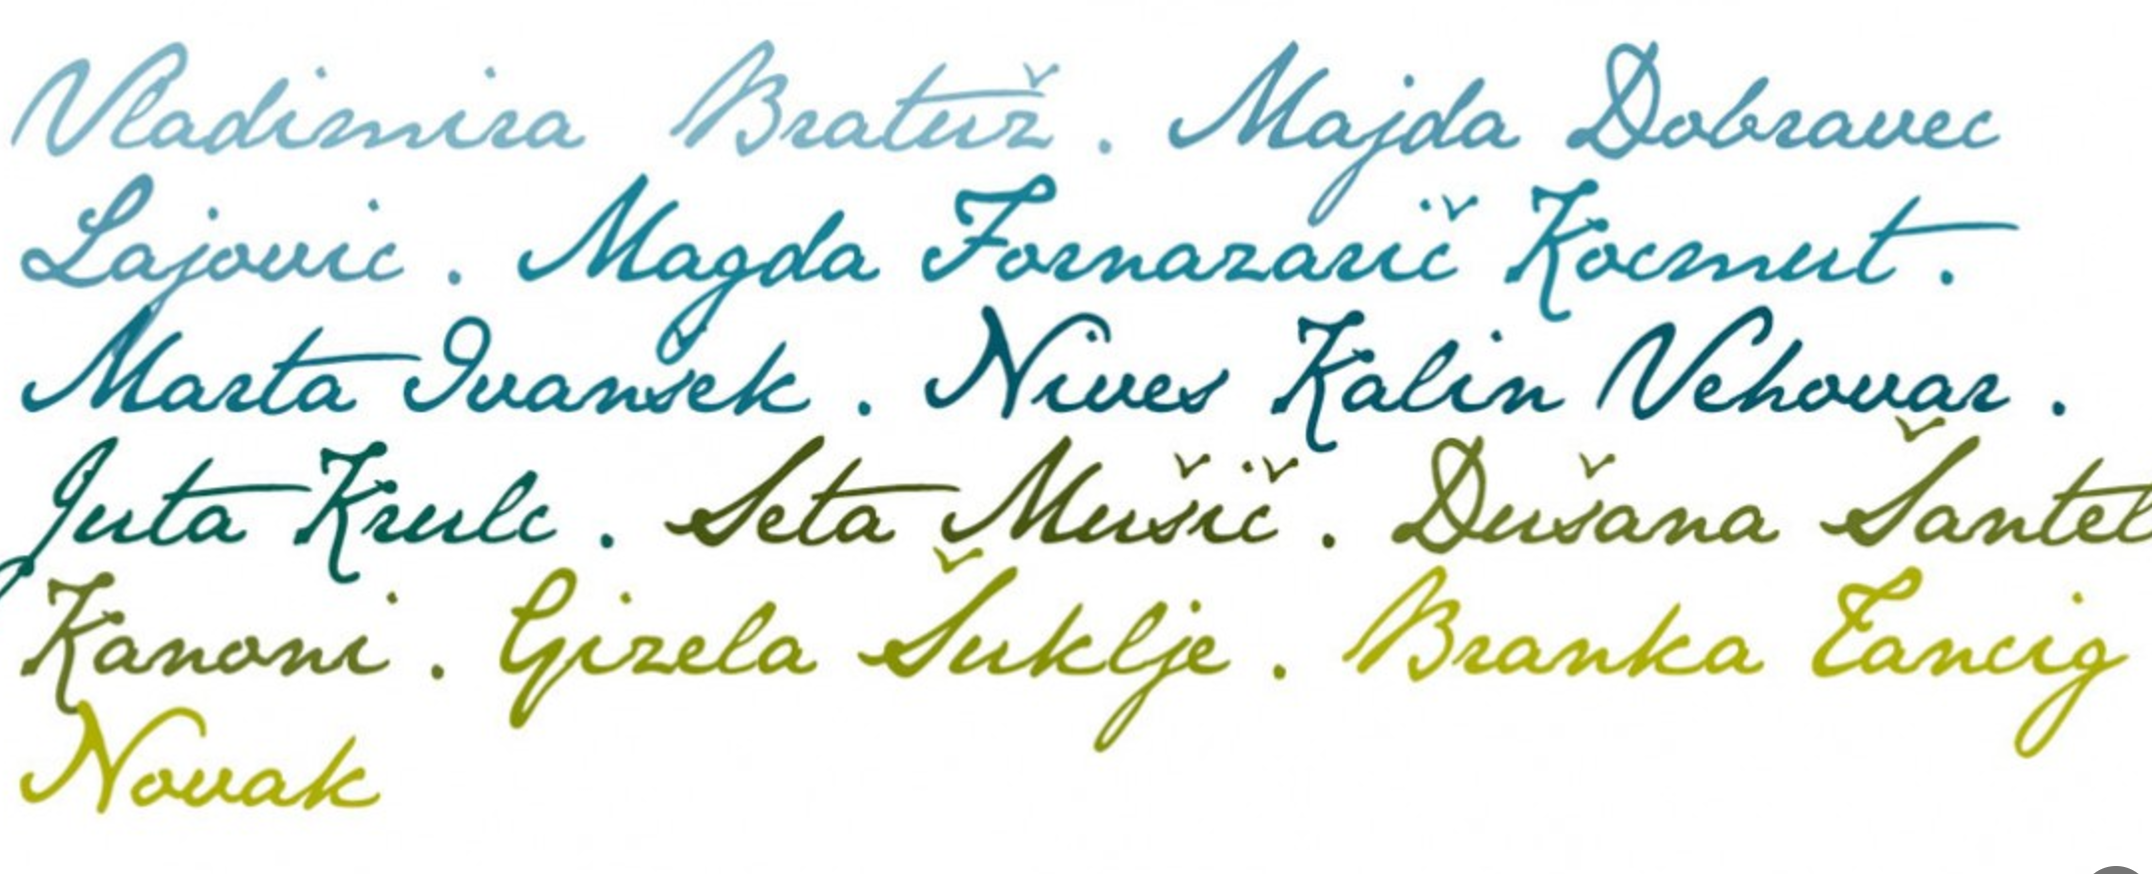 Vladimira Bratuž . Majda Dobravec
Lajovic . Magda Fornazarič Kocmut .
Marta Ivanšek . Nives Kalin Vehovar .
Juta Krulc . Seta Mušič . Dušana Šantel
Kanoni . Gizela Šuklje . Branka Tancig
Novak